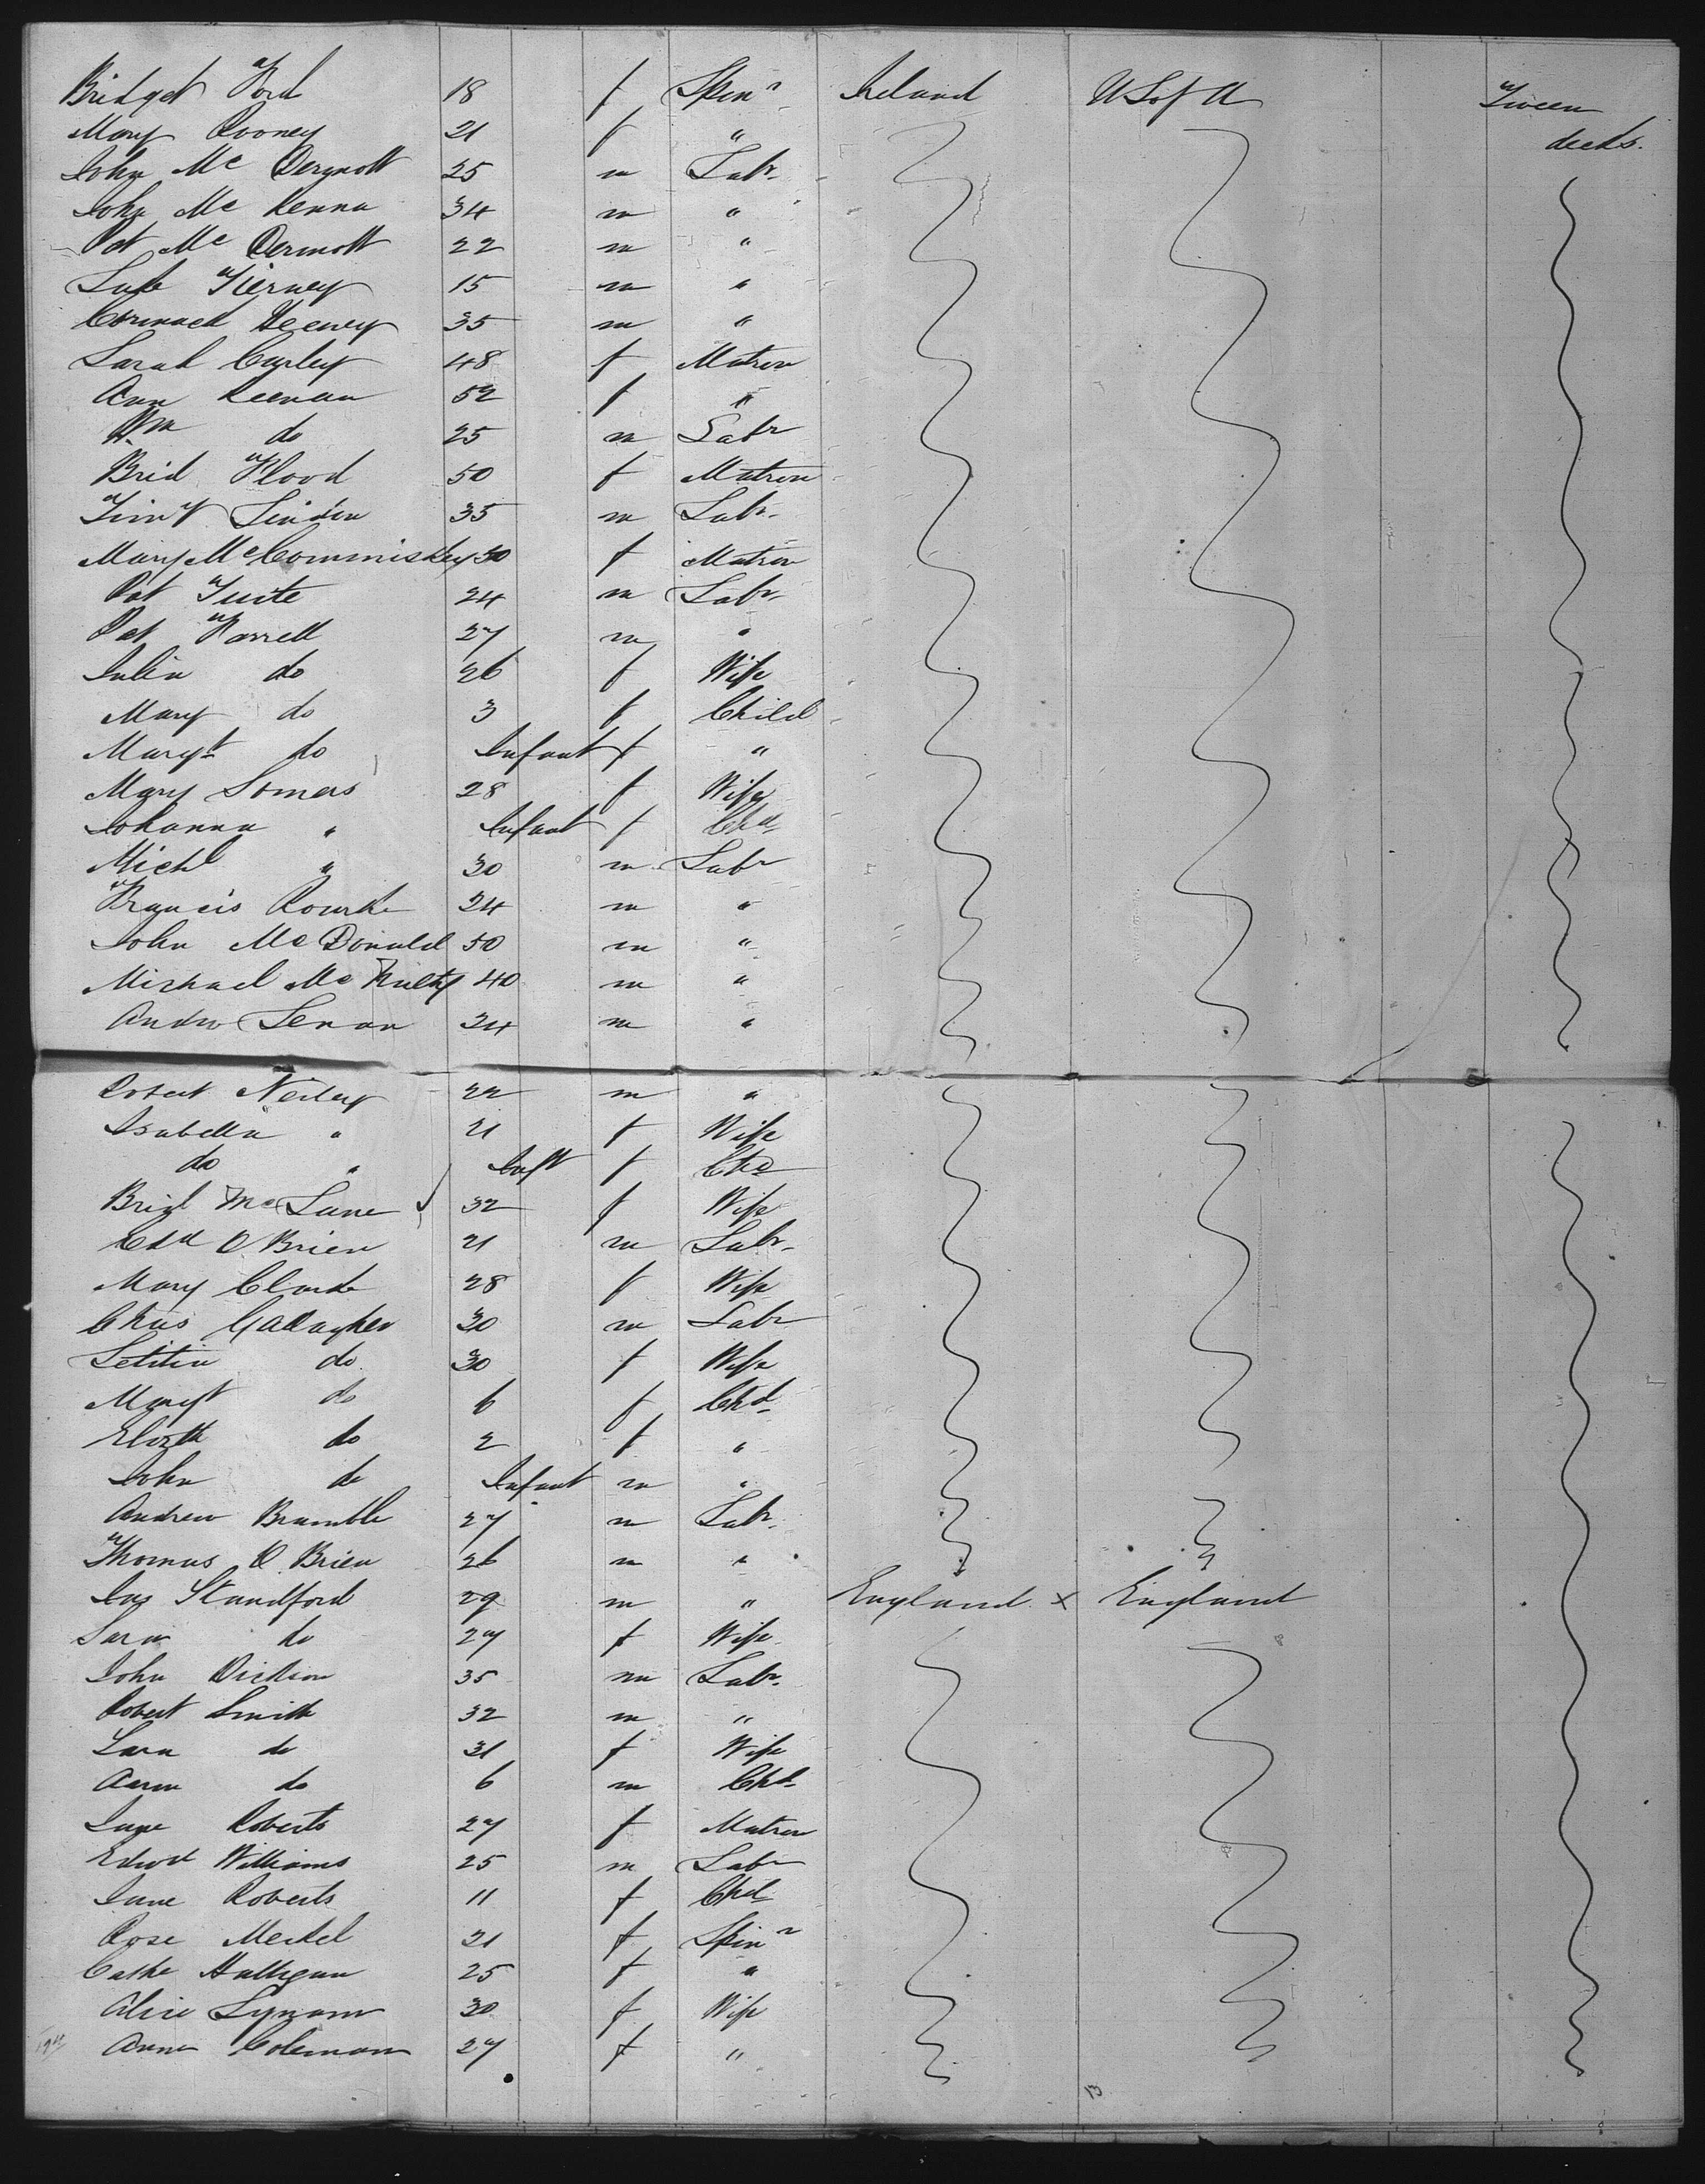 Bridget Ford 18 f Spinr Ireland U S of A Tween
decks.
Mary Rooney 21 f "
John Mc Dermott 25 m Labr
John Mc Kenna 34 m "
Pat Mc Dermott 22 m "
Luke Tierney 15 m "
Cormack Feeney 35 m "
Sarah Curley 48 f Matron
Ann Keenan 52 f "
Wm do 25 m Labr
Brid Flood 50 f Matron
Timy Linden 35 m Labr
Mary McCommiskey 50 f Matron
Pat Tuite 24 m Labr
Pat Farrell 27 m "
Julia do 26 f Wife
Mary do 3 f Child
Margt do Infant f "
Mary Somers 28 f Wife
Johanna " Infant f Chd
Michl " 30 m Labr
Francis Rourke 24 m "
John McDonald 50 m "
Michael Mc Nulty 40 m "
Andw Lenan 34 m "
Robert Neiley 22 m "
Isabella " 21 f Wife
do " Inft f Chd
Brigt McLane 32 f Wife
Edd O Brien 21 m Labr
Mary Clarke 28 f Wife
Chas Gallagher 30 m Labr
Letitia do 30 f Wife
Margt do 6 f Chd
Elizth do 2 f "
John do Infant m "
Andrew Bramble 27 m Labr
Thomas O Brien 26 m "
Jas Standford 29 m " England x England
Sara do 27 f Wife
John Dickson 35 m Labr
Robert Smith 32 m "
Sara do 31 f Wife
Aaron do 6 m Chd
Jane Roberts 27 f Matron
Edwd Williams 25 m Labr
Jane Roberts 11 f Chd
Rose Meckel 21 f Spinr
Cathe Halligan 25 f "
Alice Lynam 30 f Wife
Anne Coleman 27 f "
13